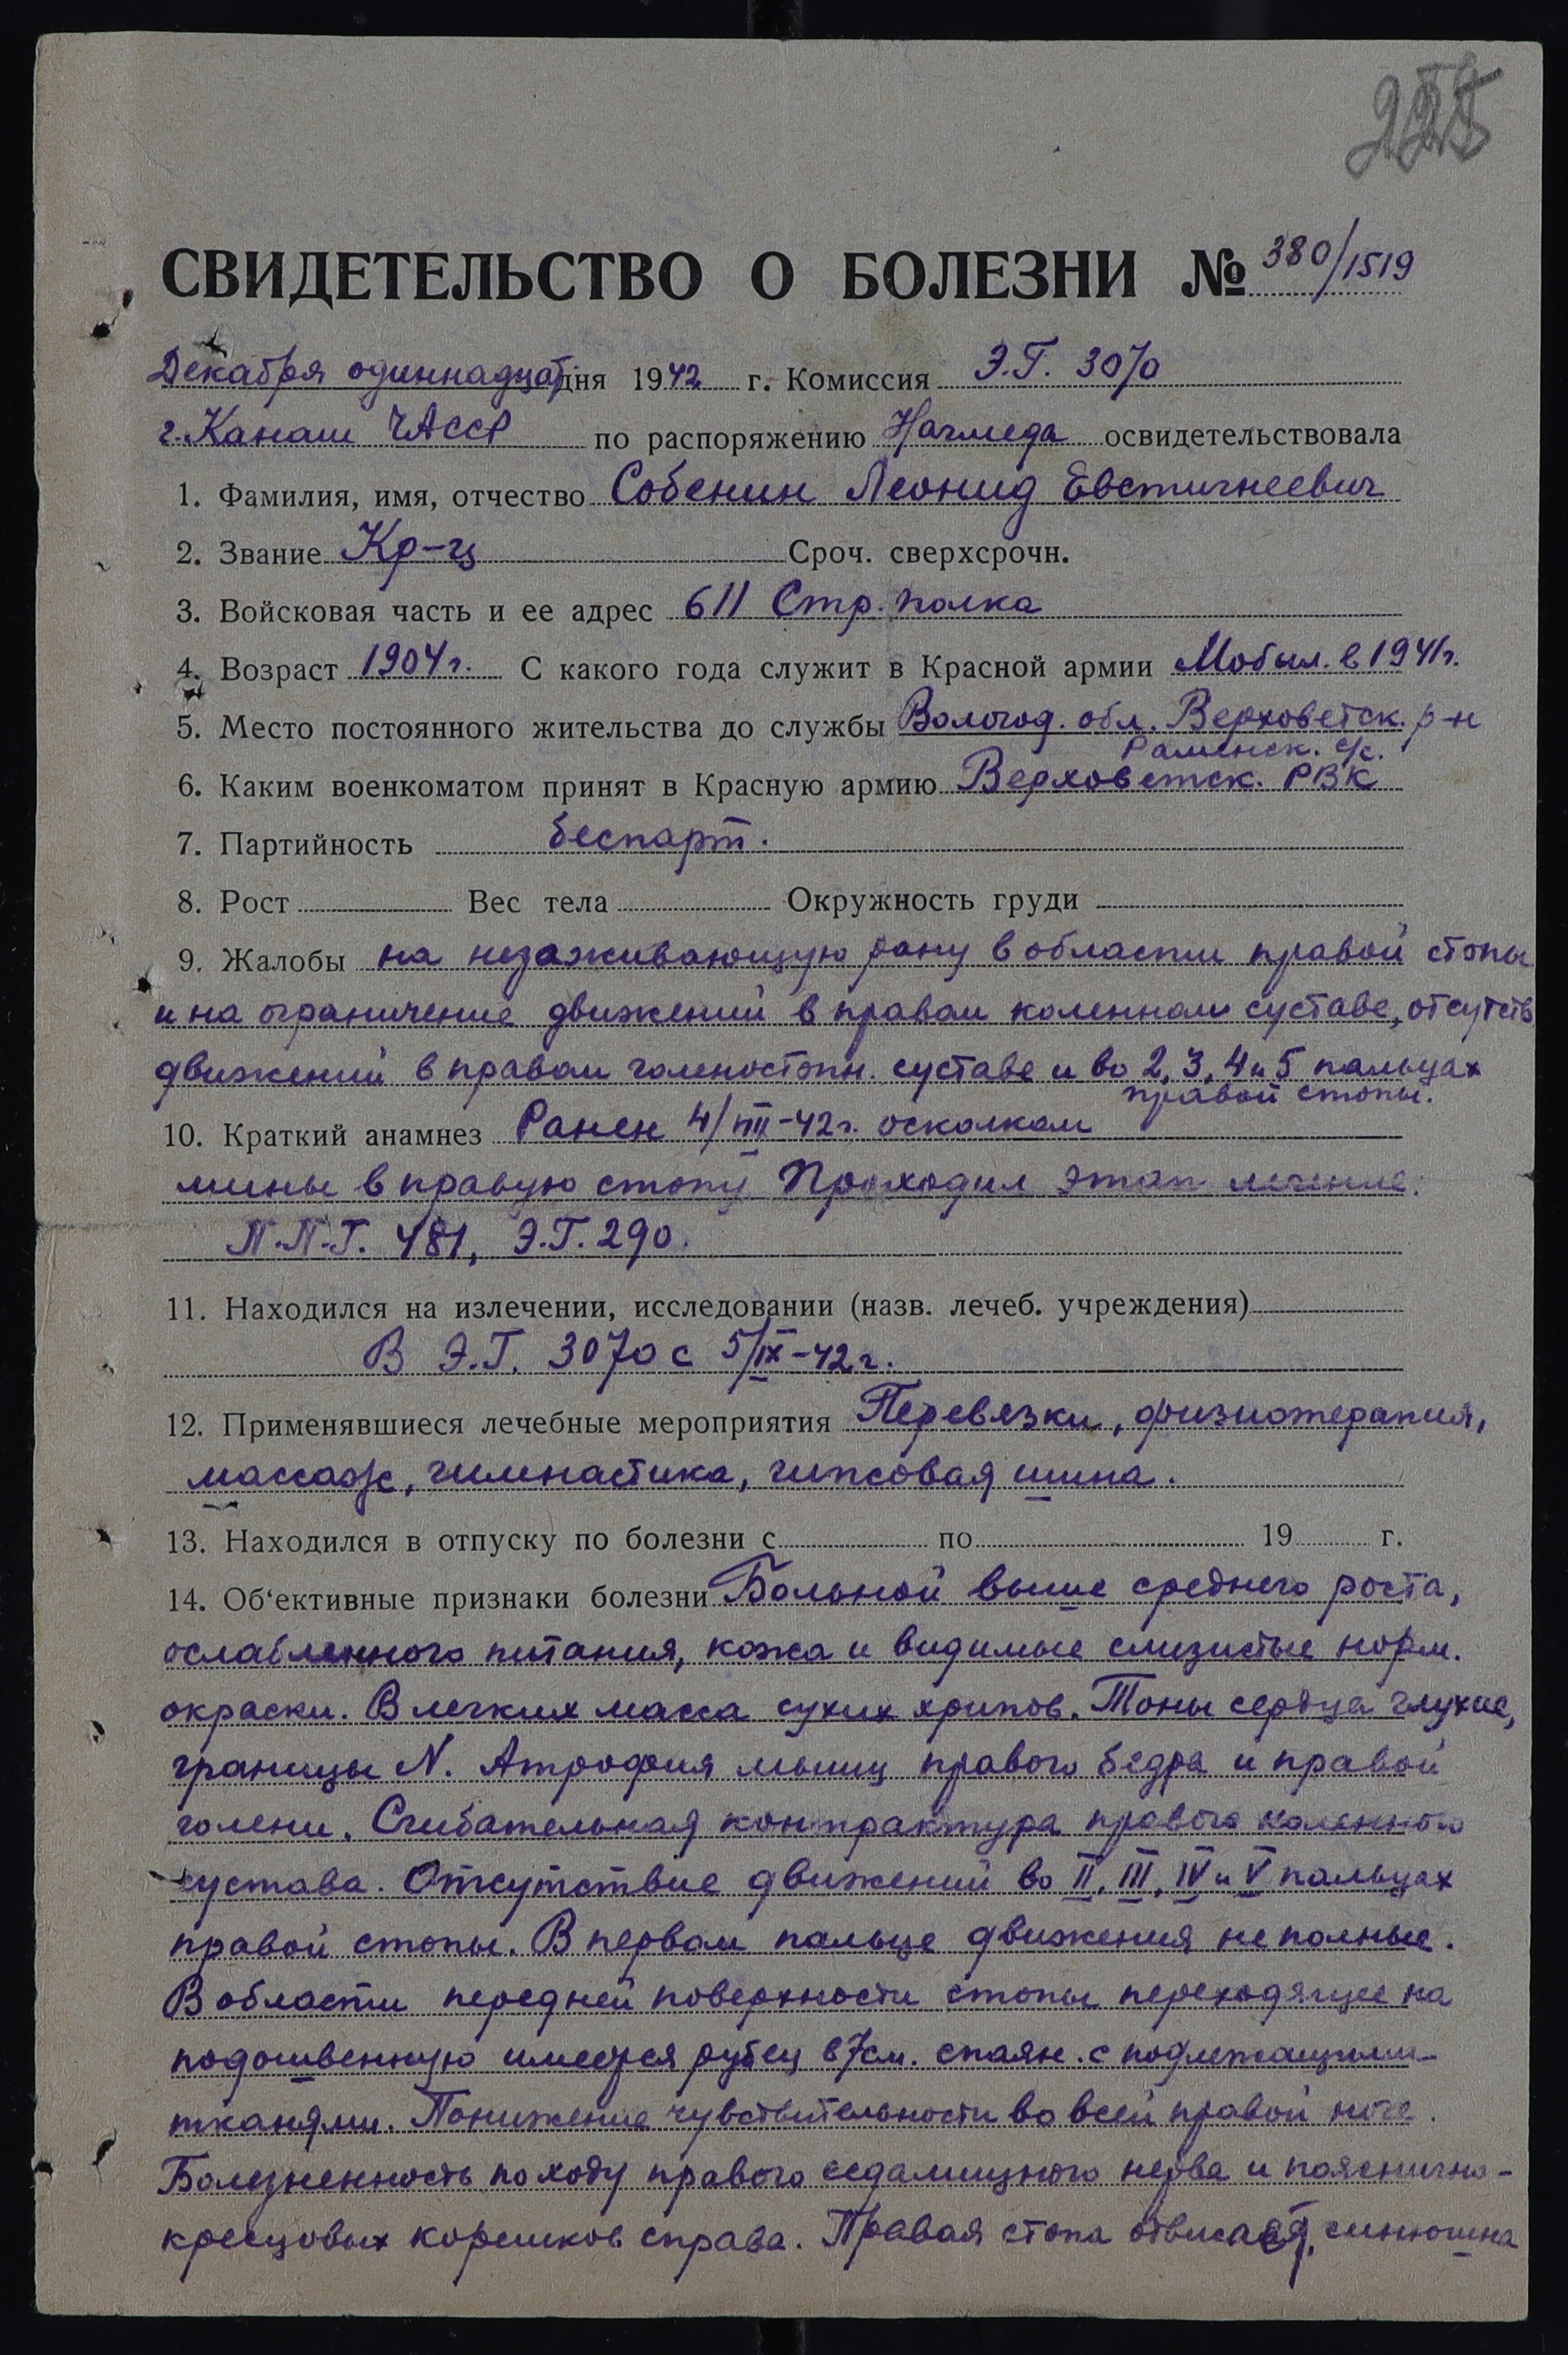 СВИДЕТЕЛЬСТВО О БОЛЕЗНИ № 380/1519
Декабря одиннадцат. дня 1942 г. Комиссия Э.Г. 3070
г. Канаш ЧАССР по распоряжению Начмеда освидетельствовала
1. Фамилия, имя, отчество Собенин Леонид Евстигнеевич
2. Звание Кр-ц Сроч. сверхсрочн.
3. Войсковая часть и ее адрес 611 Стр. полка
4. Возраст 1904 г. С какого года служит в Красной армии Мобил. в 1941 г.
5. Место постоянного жительства до службы Вологод. обл. Верховетск. р-н
Раменск. с/с.
6. Каким военкоматом принят в Красную армию Верховетск. РВК
7. Партийность беспарт.
8. Рост Вес тела Окружность груди
9. Жалобы на незаживающую рану в области правой стопы
и на ограничение движений в правом коленном суставе, отсутств
движений в правом голеностопн. суставе и во 2, 3, 4 и 5 пальцах
правой стопы.
10. Краткий анамнез Ранен 4/VIII-42 г. осколком
мины в правую стопу Проходил этап лечение.
П.П.Г. 481, Э.Г. 290.
11. Находился на излечении, исследовании (назв. лечеб. учреждения)
В Э.Г. 3070 с 5/IX-42 г.
12. Применявшиеся лечебные мероприятия Перевязки, физиотерапия,
массаж, гимнастика, гипсовая шина.
13. Находился в отпуску по болезни с по 19 г.
14. Об‘ективные признаки болезни Больной выше среднего роста,
ослабленного питания, кожа и видимые слизистые норм.
окраски. В легких масса сухих хрипов. Тоны сердца глухие,
границы N. Атрофия мышц правого бедра и правой
голени. Сгибательная контрактура правого коленного
сустава. Отсутствие движений во II, III, IV и V пальцах
правой стопы. В первом пальце движения не полные.
В области передней поверхности стопы переходящее на
подошвенную имеется рубец в 7 см. спаян. с подлежащими
тканями. Понижение чувствительности во всей правой ноге.
Болезненность по ходу правого седалищного нерва и пояснично-
кресцовых корешков справа. Правая стопа отвисает, синюшна